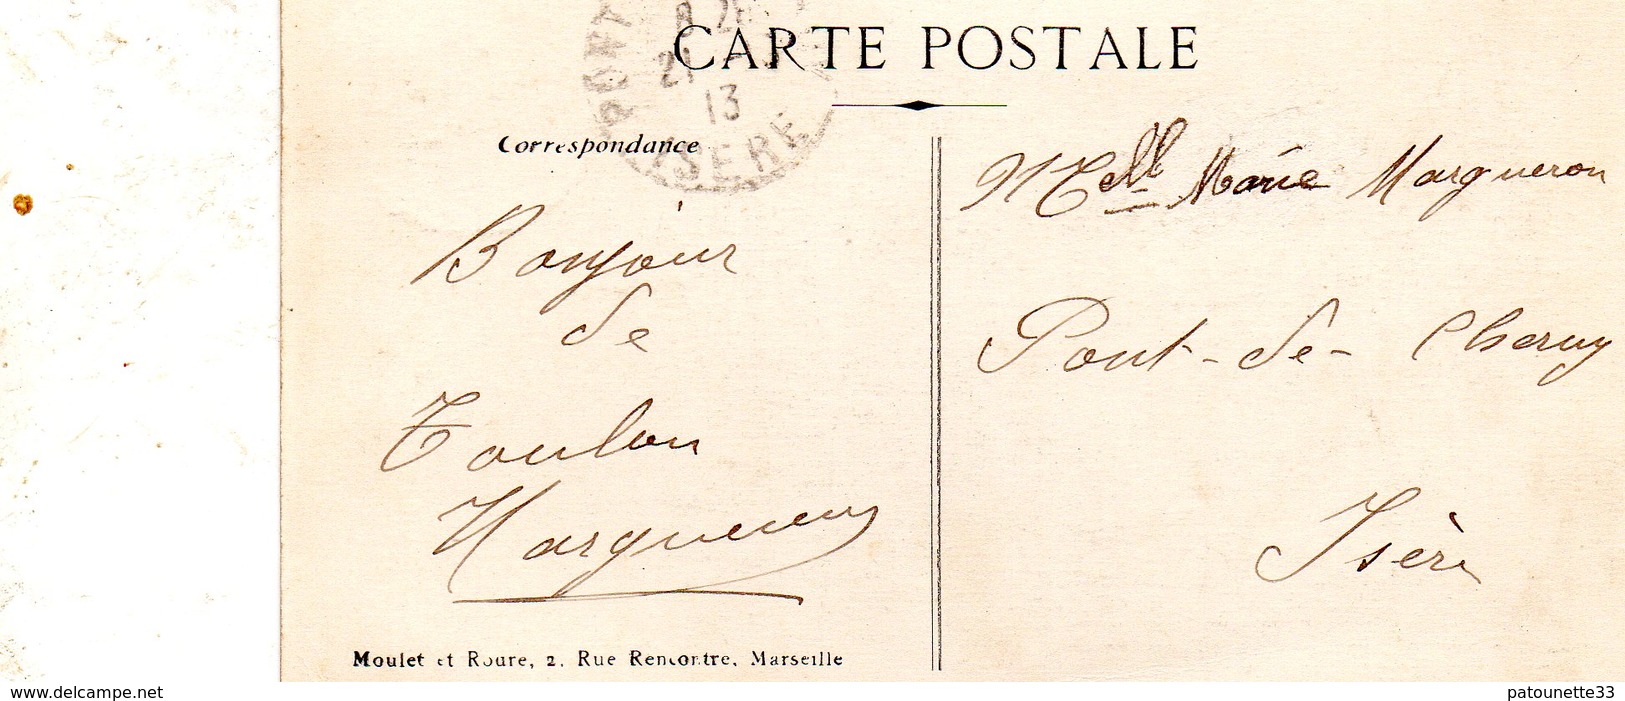 CARTE POSTALE
PONT
8 2
21
13
ISERE
Correspondance
Bonjour
de
Toulon
Margueron
Moulet et Roure, 2, Rue Rencontre, Marseille
Melle Marie Margueron
Pont-de-Cheruy
Isère
www.delcampe.net
patounette33